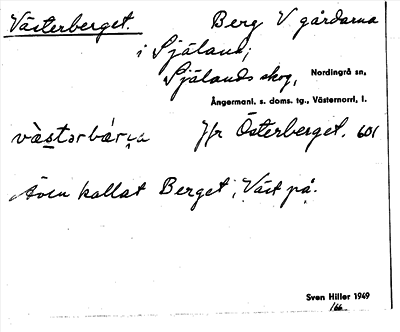 Västerberget. Berg V gårdarna
i Själand;
Själands skog, Nordingrå sn,
Ångermanl. s. doms. tg., Västernorrl, l.
Jfr Österberget. 601
Även kallat Berget, Väst på.
Sven Hiller 1949